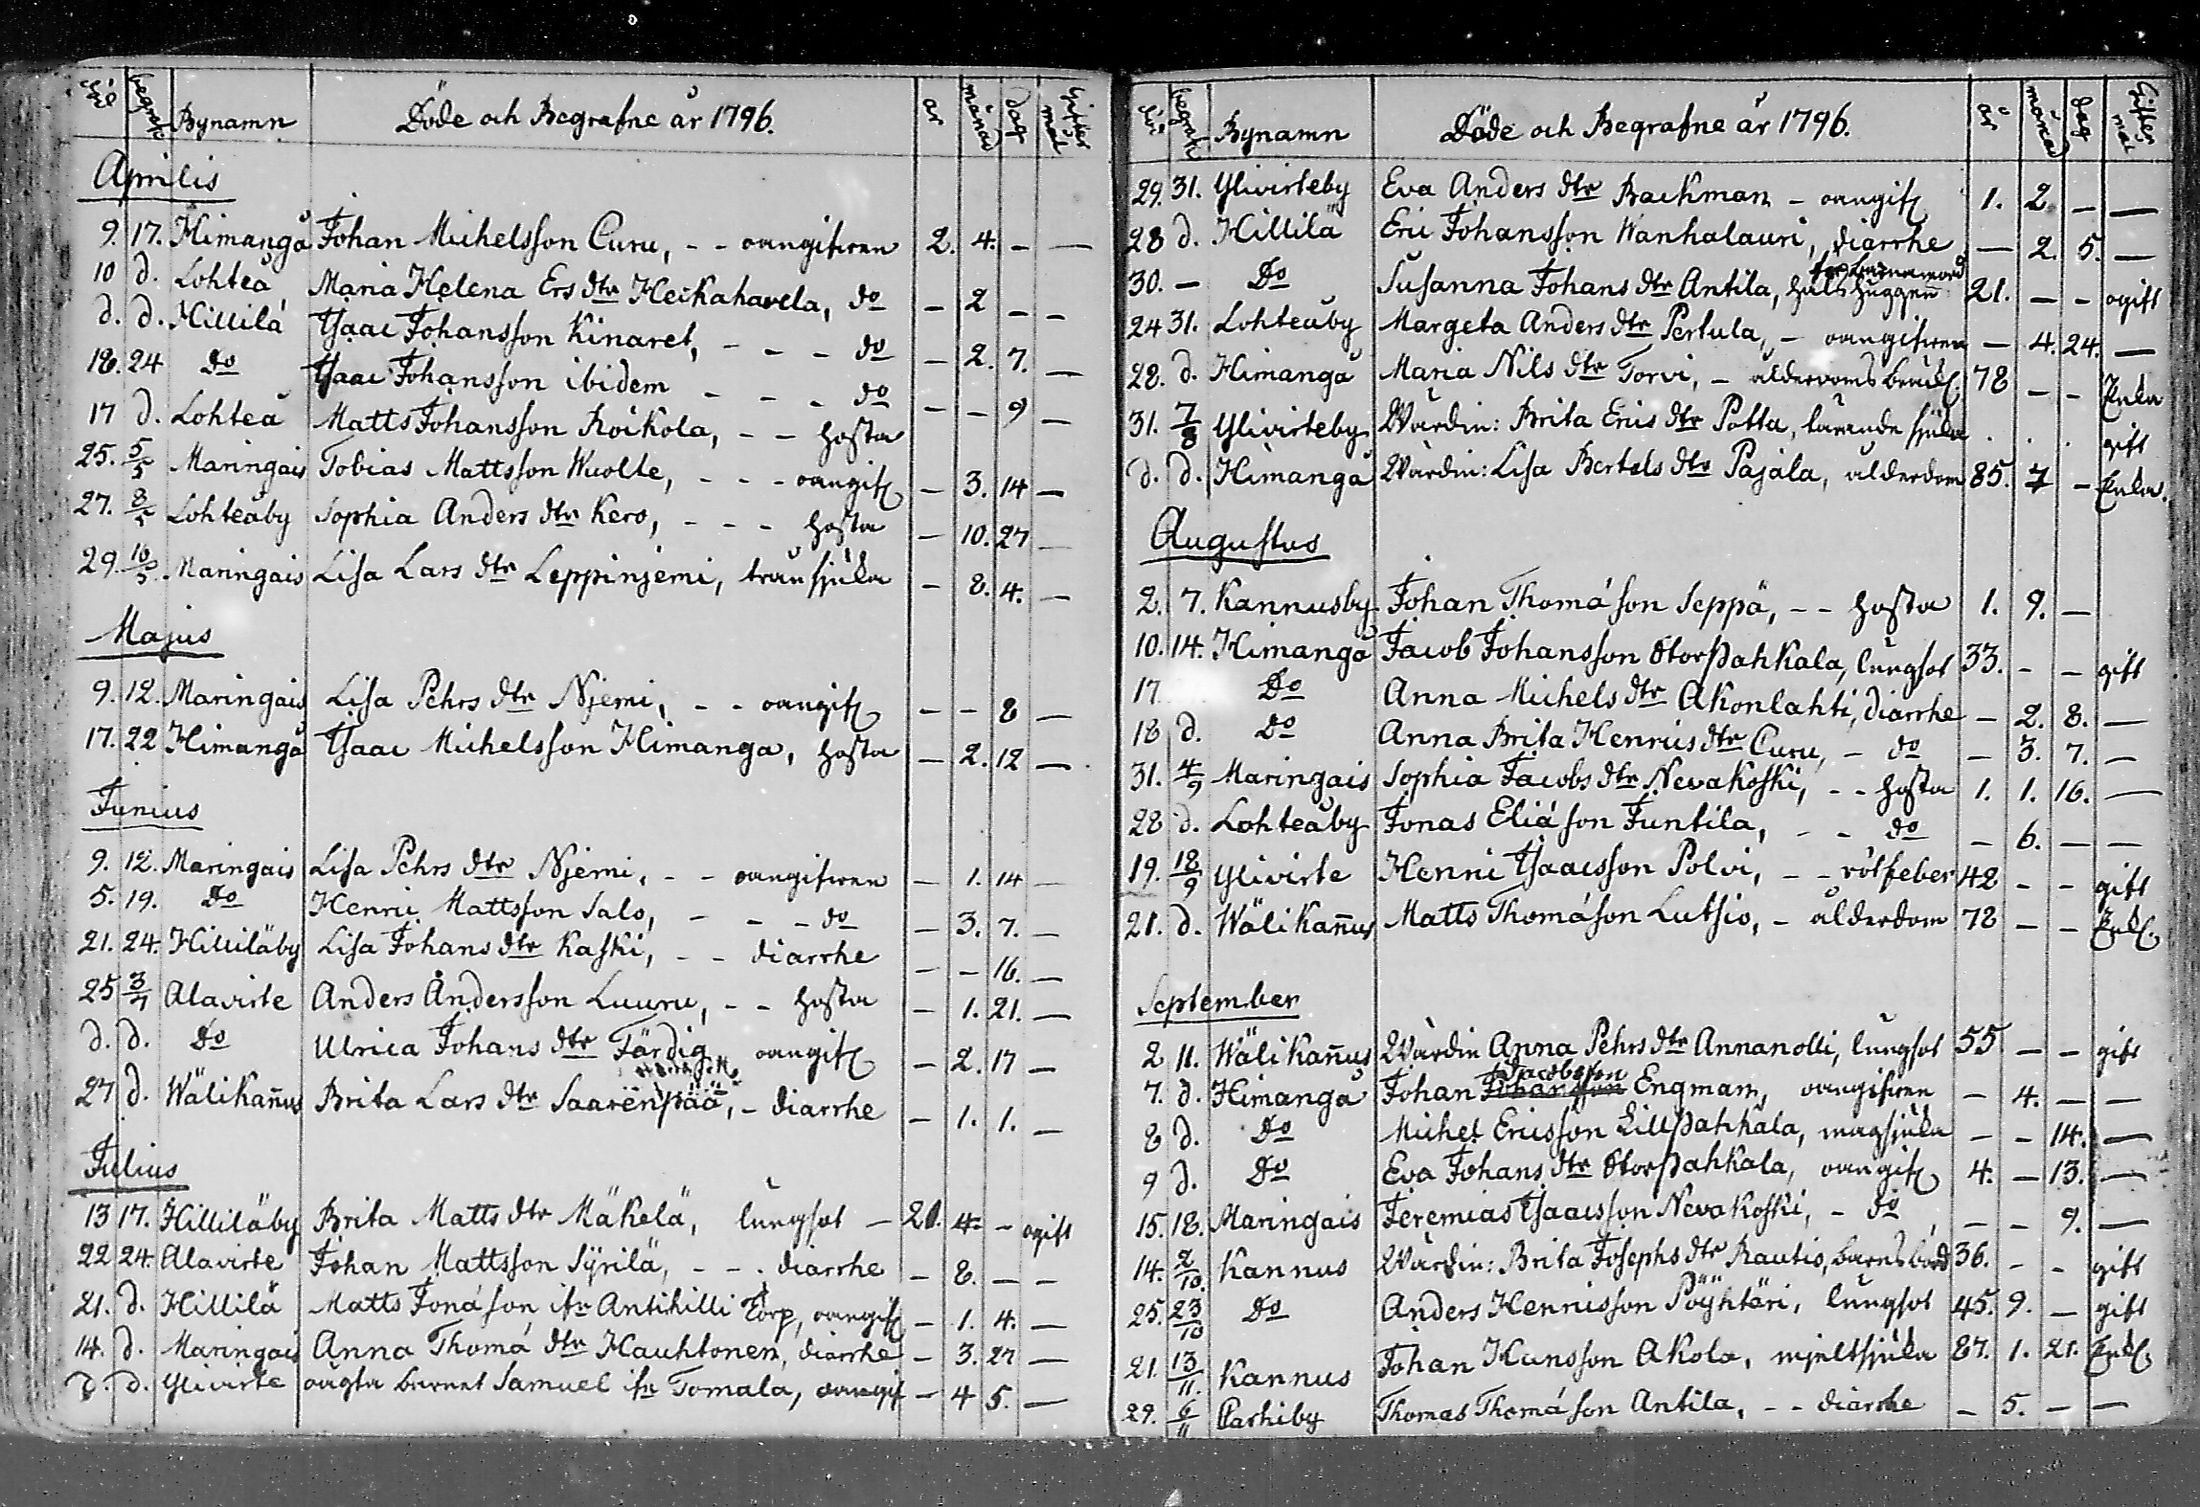 begrafs Bynamn Döde och Begrafne år 1796. år månad dag Giftermål
Aprilis
9. 17. Himangå Johan Michelsson Curu, - - oangifven 2. 4. - -
10 d. Lohteå Maria Helena Ers dtr Heikahavela, do - 2 - -
d. d. Hillilä Isaac Johansson Kinaret, - - - do - 2. 7. -
18. 24 Do Isaac Johansson ibidem - - - do - - 9 -
17 d. Lohteå Matts Johansson Roikola, - - hosta
25. 5/5 Maringais Tobias Mattsson Wuolte, - - - oangif - 3. 14 -
27. 8/5 Lohteåby Sophia Anders dtr Kero, - - - hosta - 10. 27 -
29 16/5 Maringais Lisa Lars dtr Leppinjemi, trånsjuka - 8. 4. -
Majus
9. 12. Maringais Lisa Pehrs dtr Njemi, - - oangif - - 8 -
17. 22 Himangå Isaac Michelsson Himanga, hosta - 2. 12 -
Junius
9. 12. Maringais Lisa Pehrs dtr Njemi, - - oangifven - 1. 14 -
5. 19. Do Henric Mattsson Salo, - - - do - 3. 7. -
21. 24. Hilliläby Lisa Johans dtr Kaski, - - diarrhe - - 16. -
25 3/7 Alavirte Anders Andersson Luuru, - - hosta - 1. 21. -
d. d. Do Ulrica Johans dtr Färdig oangif - 2. 17 -
27 d. Wälikan̄us Brita Lars dtr Saarenpää, - diarrhe - 1. 1. -
Julius
13 17. Hilliläby Brita Matts dtr Mäkelä, lungsot - 21. 4. - ogift
22 24. Alavirte Johan Mattsson Syrilä, - - - diarrhe - 8. - -
21. d. Hillilä Matts Jonason, ifr Antihilli Torp, oangif - 1. 4. -
14. d. Maringais Anna Thoma dtr Hauhtonen, diarrhe - 3. 27 -
d. d. Ylivirte oägta barnet Samuel ifr Tomala, oangif - 4 5. -
begrafs Bynamn Döde och Begrafne år 1796. år månad dag Giftermål
29. 31. Ylivirteby Eva Anders dtr Backman - oangif 1. 2 - -
28 d. Hillilä Eric Johansson Wanhalauri, diarrhe - 2. 5. -
för barnamord
30. - Do Susanna Johans dtr Antila, halshuggen 21. - - ogift
24 31. Lohteåby Margeta Anders dtr Pertula, - oangifven - 4. 24. -
28. d. Himangå Maria Nils dtr Torvi, - ålderdoms bräckl 78 - - Enka
31. 7/8 Ylivirteby Wärdin: Brita Erics dtr Potta, tärande sjuka . . . gift
d. d. Himangå Wärdin: Lisa Bertels dtr Pajala, ålderdom 85. 7 - Enka.
Augustus
2. 7. Kannusby Johan Thomason Seppä, - - hosta 1. 9. -
10. 14. Himangå Jacob Johansson Storpahkala, lungsot 33. - - gift
17. Do Anna Michels dtr Akonlahti, diarrhe - 2. 8. -
18 d. Do Anna Brita Henrics dtr Curu, - do - 3. 7. -
31. 4/9 Maringais Sophia Jacobs dtr Nevakoski, - - hosta 1. 1. 16. -
28 d. Lohteåby Jonas Eliason Juntila, - - do - 6. - -
19. 18/9 Ylivirte Henric Isaacsson Polvi, - - rötfeber 42 - - gift
21. d. Wälikan̄us Matts Thomason Lutsio, - ålderdom 78 - - Enkl.
September
2 11. Wälikan̄us Wärdin Anna Pehrs dtr Annanolli, lungsot 55 - - gift
Jacobsson
7. d. Himangå Johan Johansson Engman, oangifven - 4. - -
8 d. Do Michel Ericsson Lillpahkala, magsjuka - - 14. -
9 d. Do Eva Johans dtr Storpahkala, oangif 4. - 13. -
15. 18. Maringais Jeremias Isaacsson Nevakoski, - do - - 9. -
14. 2/10. Kannus Wärdin: Brita Josephs dtr Rautio, barnsbörd 36. - - gift
25. 23/10 Do Anders Henricsson Pöyhtäri, lungsot 45. 9. - gift
21. 13/11. Kannus Johan Hansson Akola, mjeltsjuka 87. 1. 21. Enkl.
29. 6/11 Parhiby Thomas Thomason Antila, - - diarrhe - 5. - -